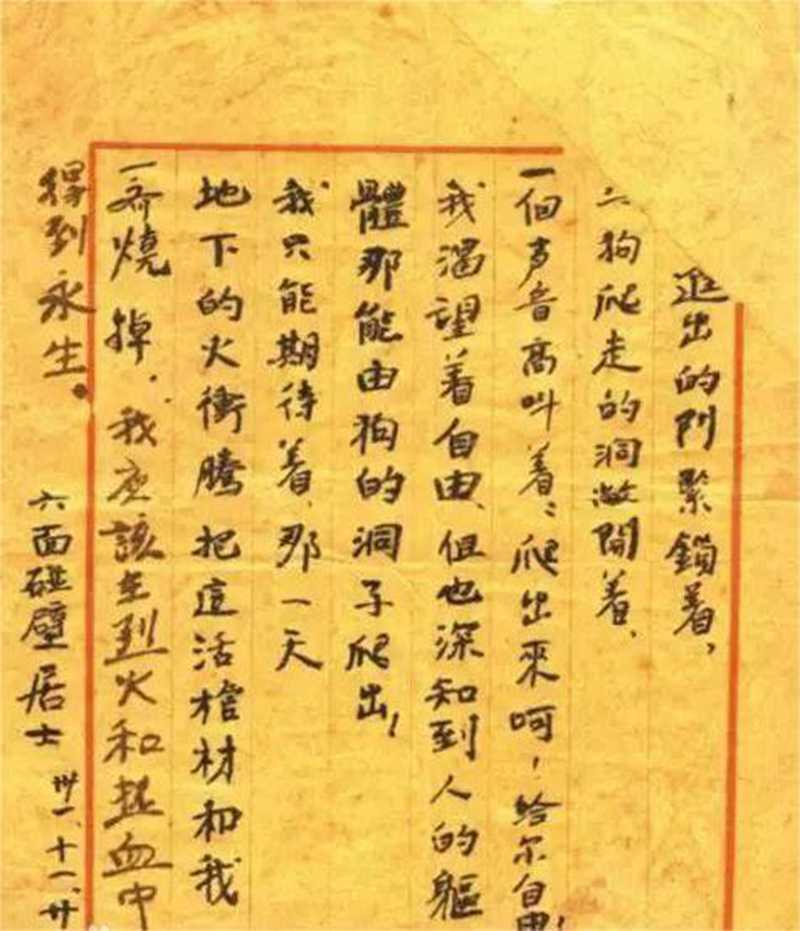 進出的門緊鎖着,
狗爬走的洞敞開着、
一個声音高叫着:爬出來呵!給尔自由!
我渴望着自由、但也深知到人的軀
體那能由狗的洞子爬出!
我只能期待着、那一天
地下的火衝騰把這活棺材和我
一齊燒掉.我应該在烈火和热血中
得到永生。
六面碰壁居士 卅一、十一、廿